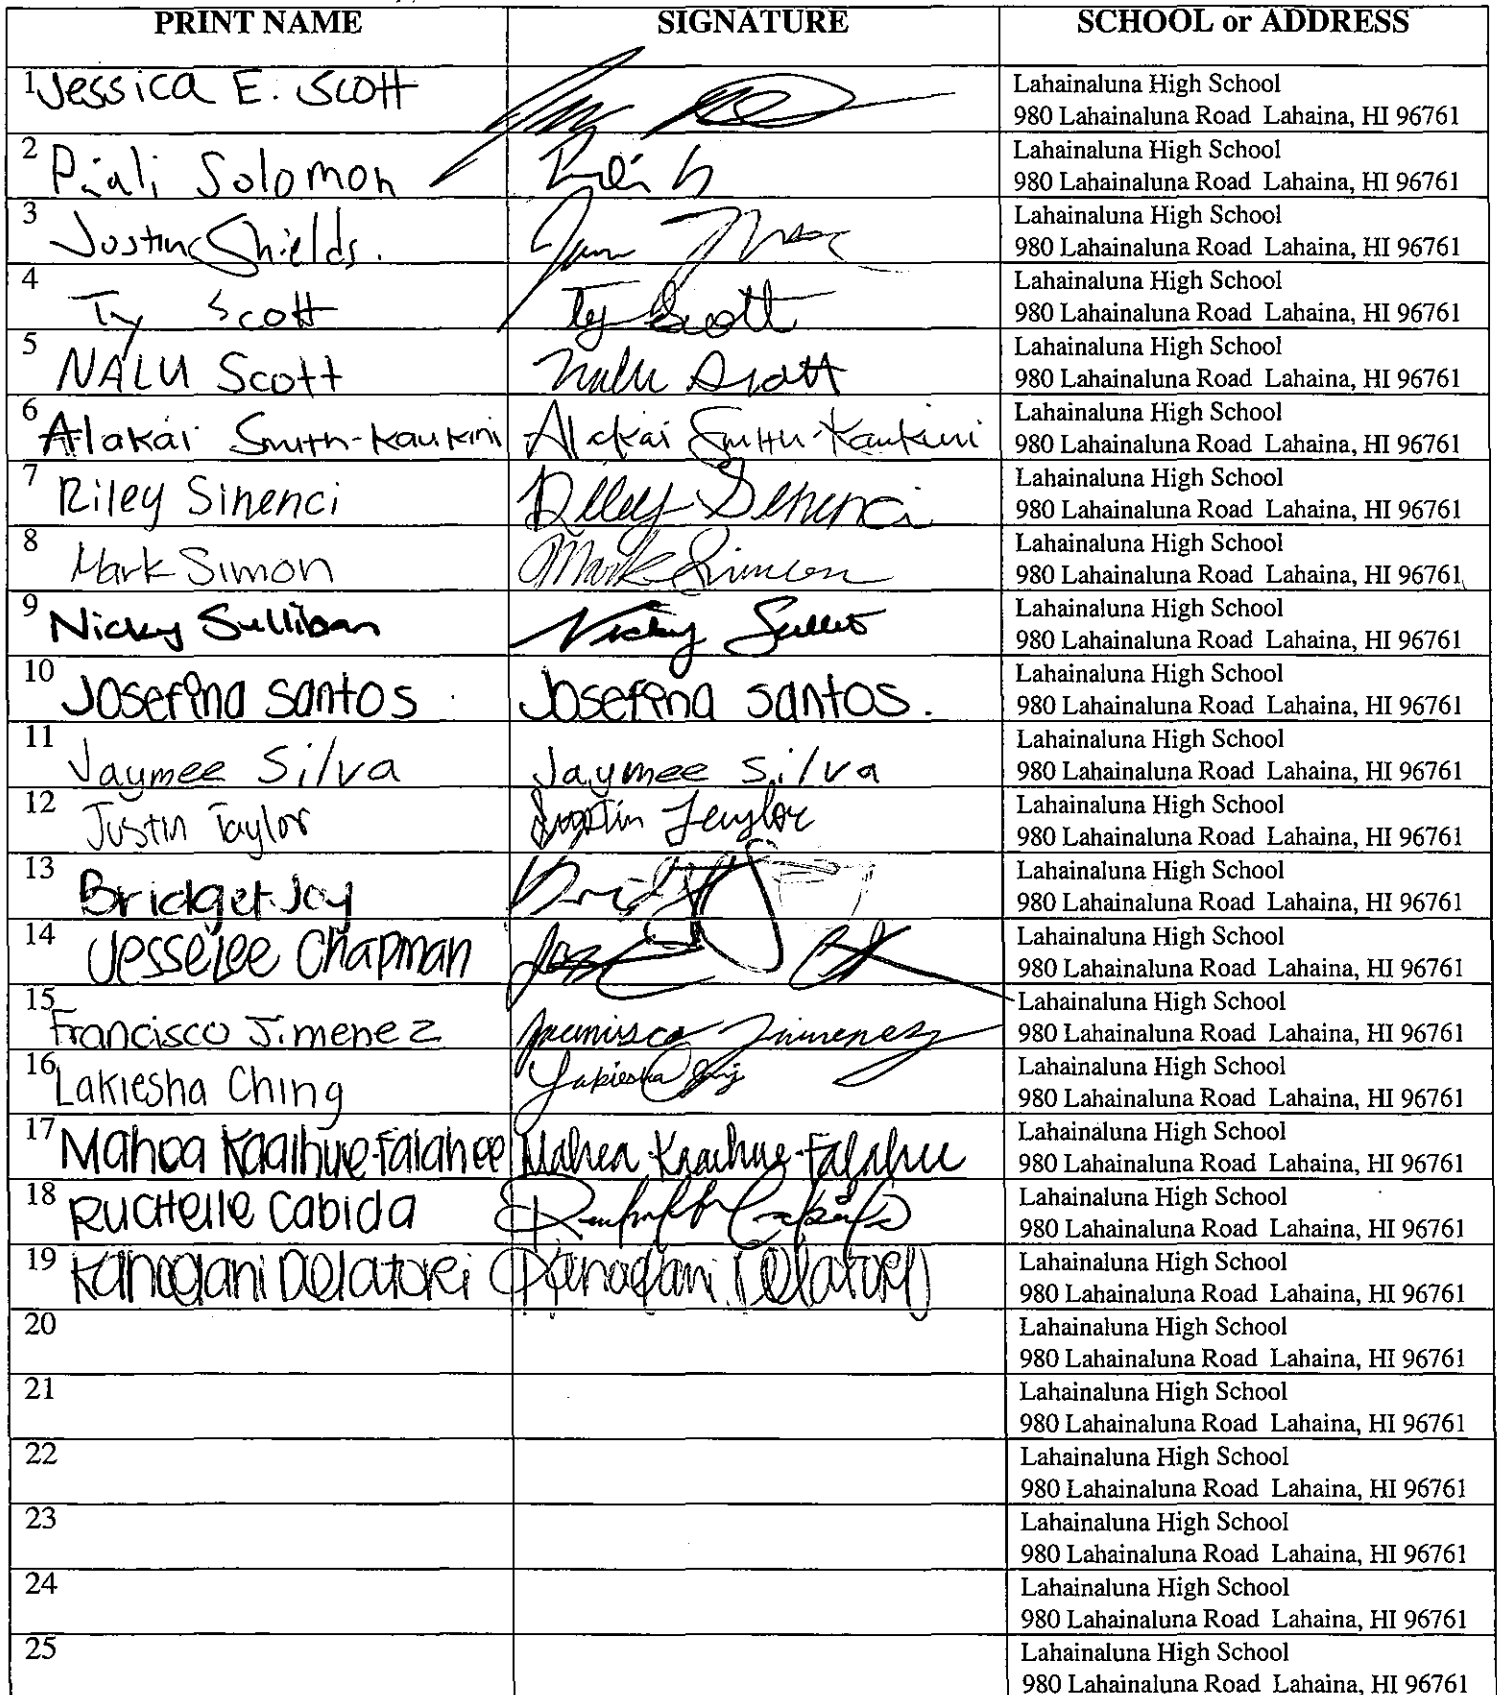 PRINT NAME SIGNATURE SCHOOL or ADDRESS
1 Jessica E. Scott Lahainaluna High School
980 Lahainaluna Road Lahaina, HI 96761
2 Piali Solomon Lahainaluna High School
980 Lahainaluna Road Lahaina, HI 96761
3 Justin Shields. Lahainaluna High School
980 Lahainaluna Road Lahaina, HI 96761
4 Ty Scott Ty Scott Lahainaluna High School
980 Lahainaluna Road Lahaina, HI 96761
5 NALU Scott Nalu Scott Lahainaluna High School
980 Lahainaluna Road Lahaina, HI 96761
6 Alakai Smith-Kaukini Alakai Smith-Kaukini Lahainaluna High School
980 Lahainaluna Road Lahaina, HI 96761
7 Riley Sinenci Riley Sinenci Lahainaluna High School
980 Lahainaluna Road Lahaina, HI 96761
8 Mark Simon Mark Simon Lahainaluna High School
980 Lahainaluna Road Lahaina, HI 96761
9 Nicky Sulliban Nicky Lahainaluna High School
980 Lahainaluna Road Lahaina, HI 96761
10 Josefina Santos Josefina Santos. Lahainaluna High School
980 Lahainaluna Road Lahaina, HI 96761
11 Jaymee Silva Jaymee Silva Lahainaluna High School
980 Lahainaluna Road Lahaina, HI 96761
12 Justin Taylor Justin Taylor Lahainaluna High School
980 Lahainaluna Road Lahaina, HI 96761
13 Bridget Joy Lahainaluna High School
980 Lahainaluna Road Lahaina, HI 96761
14 Jesselee Chapman Lahainaluna High School
980 Lahainaluna Road Lahaina, HI 96761
15 Francisco Jimenez Francisco Jimenez Lahainaluna High School
980 Lahainaluna Road Lahaina, HI 96761
16 Lakiesha Ching Lakiesha Ching Lahainaluna High School
980 Lahainaluna Road Lahaina, HI 96761
17 Mahea Kaaihue-Falahee Mahea Kaaihue-Falahee Lahainaluna High School
980 Lahainaluna Road Lahaina, HI 96761
18 Ruchelle Cabida Lahainaluna High School
980 Lahainaluna Road Lahaina, HI 96761
19 Kanoelani Delatori Kanoelani Delatori Lahainaluna High School
980 Lahainaluna Road Lahaina, HI 96761
20 Lahainaluna High School
980 Lahainaluna Road Lahaina, HI 96761
21 Lahainaluna High School
980 Lahainaluna Road Lahaina, HI 96761
22 Lahainaluna High School
980 Lahainaluna Road Lahaina, HI 96761
23 Lahainaluna High School
980 Lahainaluna Road Lahaina, HI 96761
24 Lahainaluna High School
980 Lahainaluna Road Lahaina, HI 96761
25 Lahainaluna High School
980 Lahainaluna Road Lahaina, HI 96761